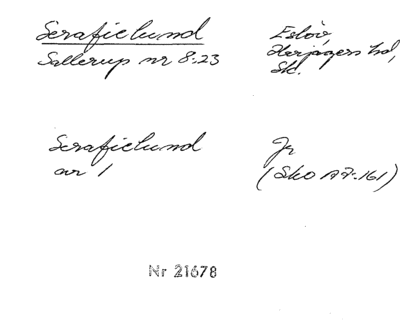 Serafielund
Sallerup nr 8:23
Eslöv,
Harjagers hd,
Sk.
Serafielund
av 1
Jr
(SkO A7:161)
Nr 21678